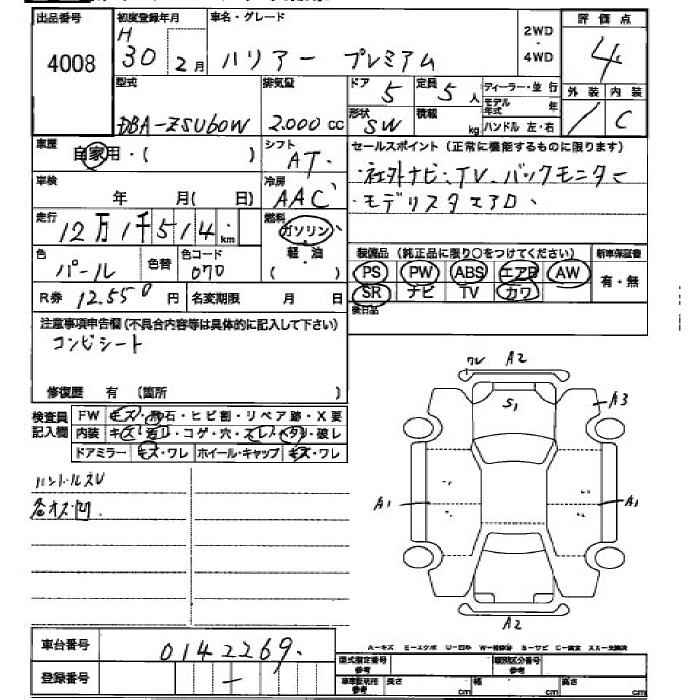 出品番号 初度登録年月 車名・グレード 2WD ・ 4WD 評価点
4008 H 30年 2月 ハリアー プレミアム 4
型式 排気量 ドア 5 定員 5人 ディーラー・並行 外装 内装
DBA-ZSU60W 2.000cc 形状 SW 積載 kg モデル年式 年 ハンドル 左・右 / C
車歴 自家用・( ) シフト AT. セールスポイント(正常に機能するものに限ります)
車検 年 月(日) 冷房 AAC ・社外ナビ、TV、バックモニター
走行 12万1千514.km 燃料 ガソリン・軽・油 ( ) ・モデリスタエアロ、
色 パール 色替 色コード 070 装備品(純正品に限り○をつけてください) 新車保証書
PS PW ABS エアB AW 有・無
R券 12.550円 名変期限 月 日 SR ナビ TV カワ
後日品
注意事項申告欄(不具合内容等は具体的に記入して下さい)
コンビシート
修復歴 有 (箇所 )
検査員記入欄 FW キズ・飛石・ヒビ割・リペア跡・X要
内装 キズ・汚れ・コゲ・穴・スレ・ヘタリ・破レ
ドアミラー キズ・ワレ ホイール・キャップ キズ・ワレ
ハンドルスレ
各オス凹
ワレ A2
S1 A3
A1 A1
A2
A-キズ E-エクボ U-凹み W-補修跡 S-サビ C-腐食 XX-交換済
車台番号 0142269.
登録番号 —
型式指定番号 参考 類別区分番号 参考
車車証明用 参考 長さ cm 幅 cm 高さ cm